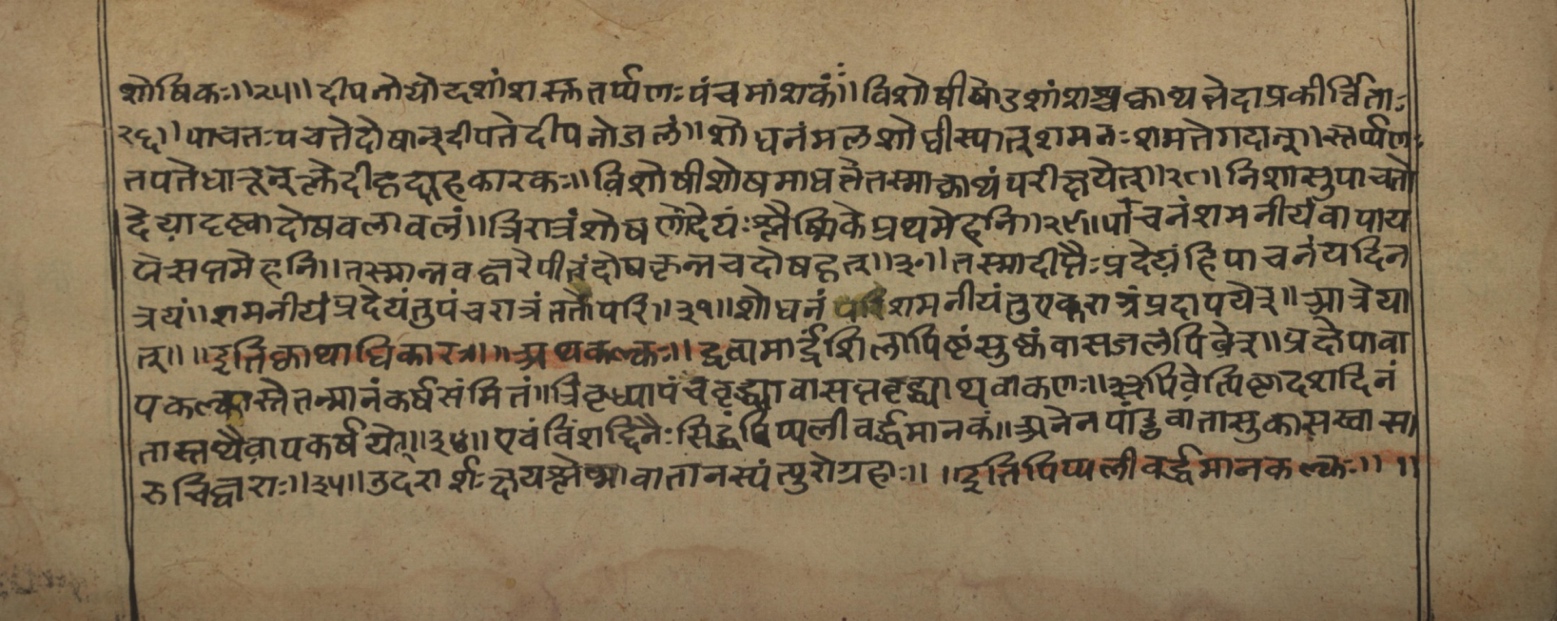 शोषिकः॥२५॥दीपनोयोदशांशस्क्तर्प्पणःपंचमांशकं॥विशोषीषोडशांशश्चक्वाथभेदाप्रकीर्त्तिताः
२६॥पाचनःपचतेदोषान्दीपतेदीपनोजलं॥शोधनंमलशोधीस्यात्शमनःशमतेगदान्॥स्तर्प्पण
तपतेधातून्क्लेदीहृदाहकारकः॥विशोषीशोषमाधत्तेतस्मात्क्वाथंपरीक्षयेत्॥२८॥निशासुपाचनो
देयादृष्ट्वादोषवलावलं॥त्रिरात्रंशोषणोदेयःश्लैष्मिकेप्रथमेहनि॥२९॥पाचनंशमनीयंवापाय
येसप्तमेहनि॥तस्मान्नवज्वरेपीतंदोषकृन्नचदोषहृत्॥३०॥तस्मादीप्तैःप्रदेयंहिपाचनंयदिन
त्रयं॥शमनीयंप्रदेयंतुपंचरात्रंततोपरि॥३१॥शोधनंशमनीयंतुएकरात्रंप्रदापयेत्॥आत्रेया
त्॥॥इतिक्वाथाधिकारः॥॥अथकल्कः॥द्रवामार्द्रंशिलापिष्टंसुष्कंवासजलंपिवेत्॥प्रक्षेपावा
पकल्कास्तेतन्मानंकर्षसंमितं॥त्रिवृध्यापंचवृद्ध्यावासप्तवृद्ध्याथवाकणाः॥पिवेत्पिष्ट्वादशदिनं
तास्तथैवापकर्षयेत्॥३४॥एवंविंशद्दिनैःसिद्धंपिप्पलीवर्द्धमानकं॥अनेनपांडुवातासुकासस्वासा
रुचिज्वराः॥३५॥उदरार्शःक्षयश्लेष्मावातानस्यंत्युरोग्रहाः॥॥इतिपिप्पलीवर्द्धमानकल्कः॥॥